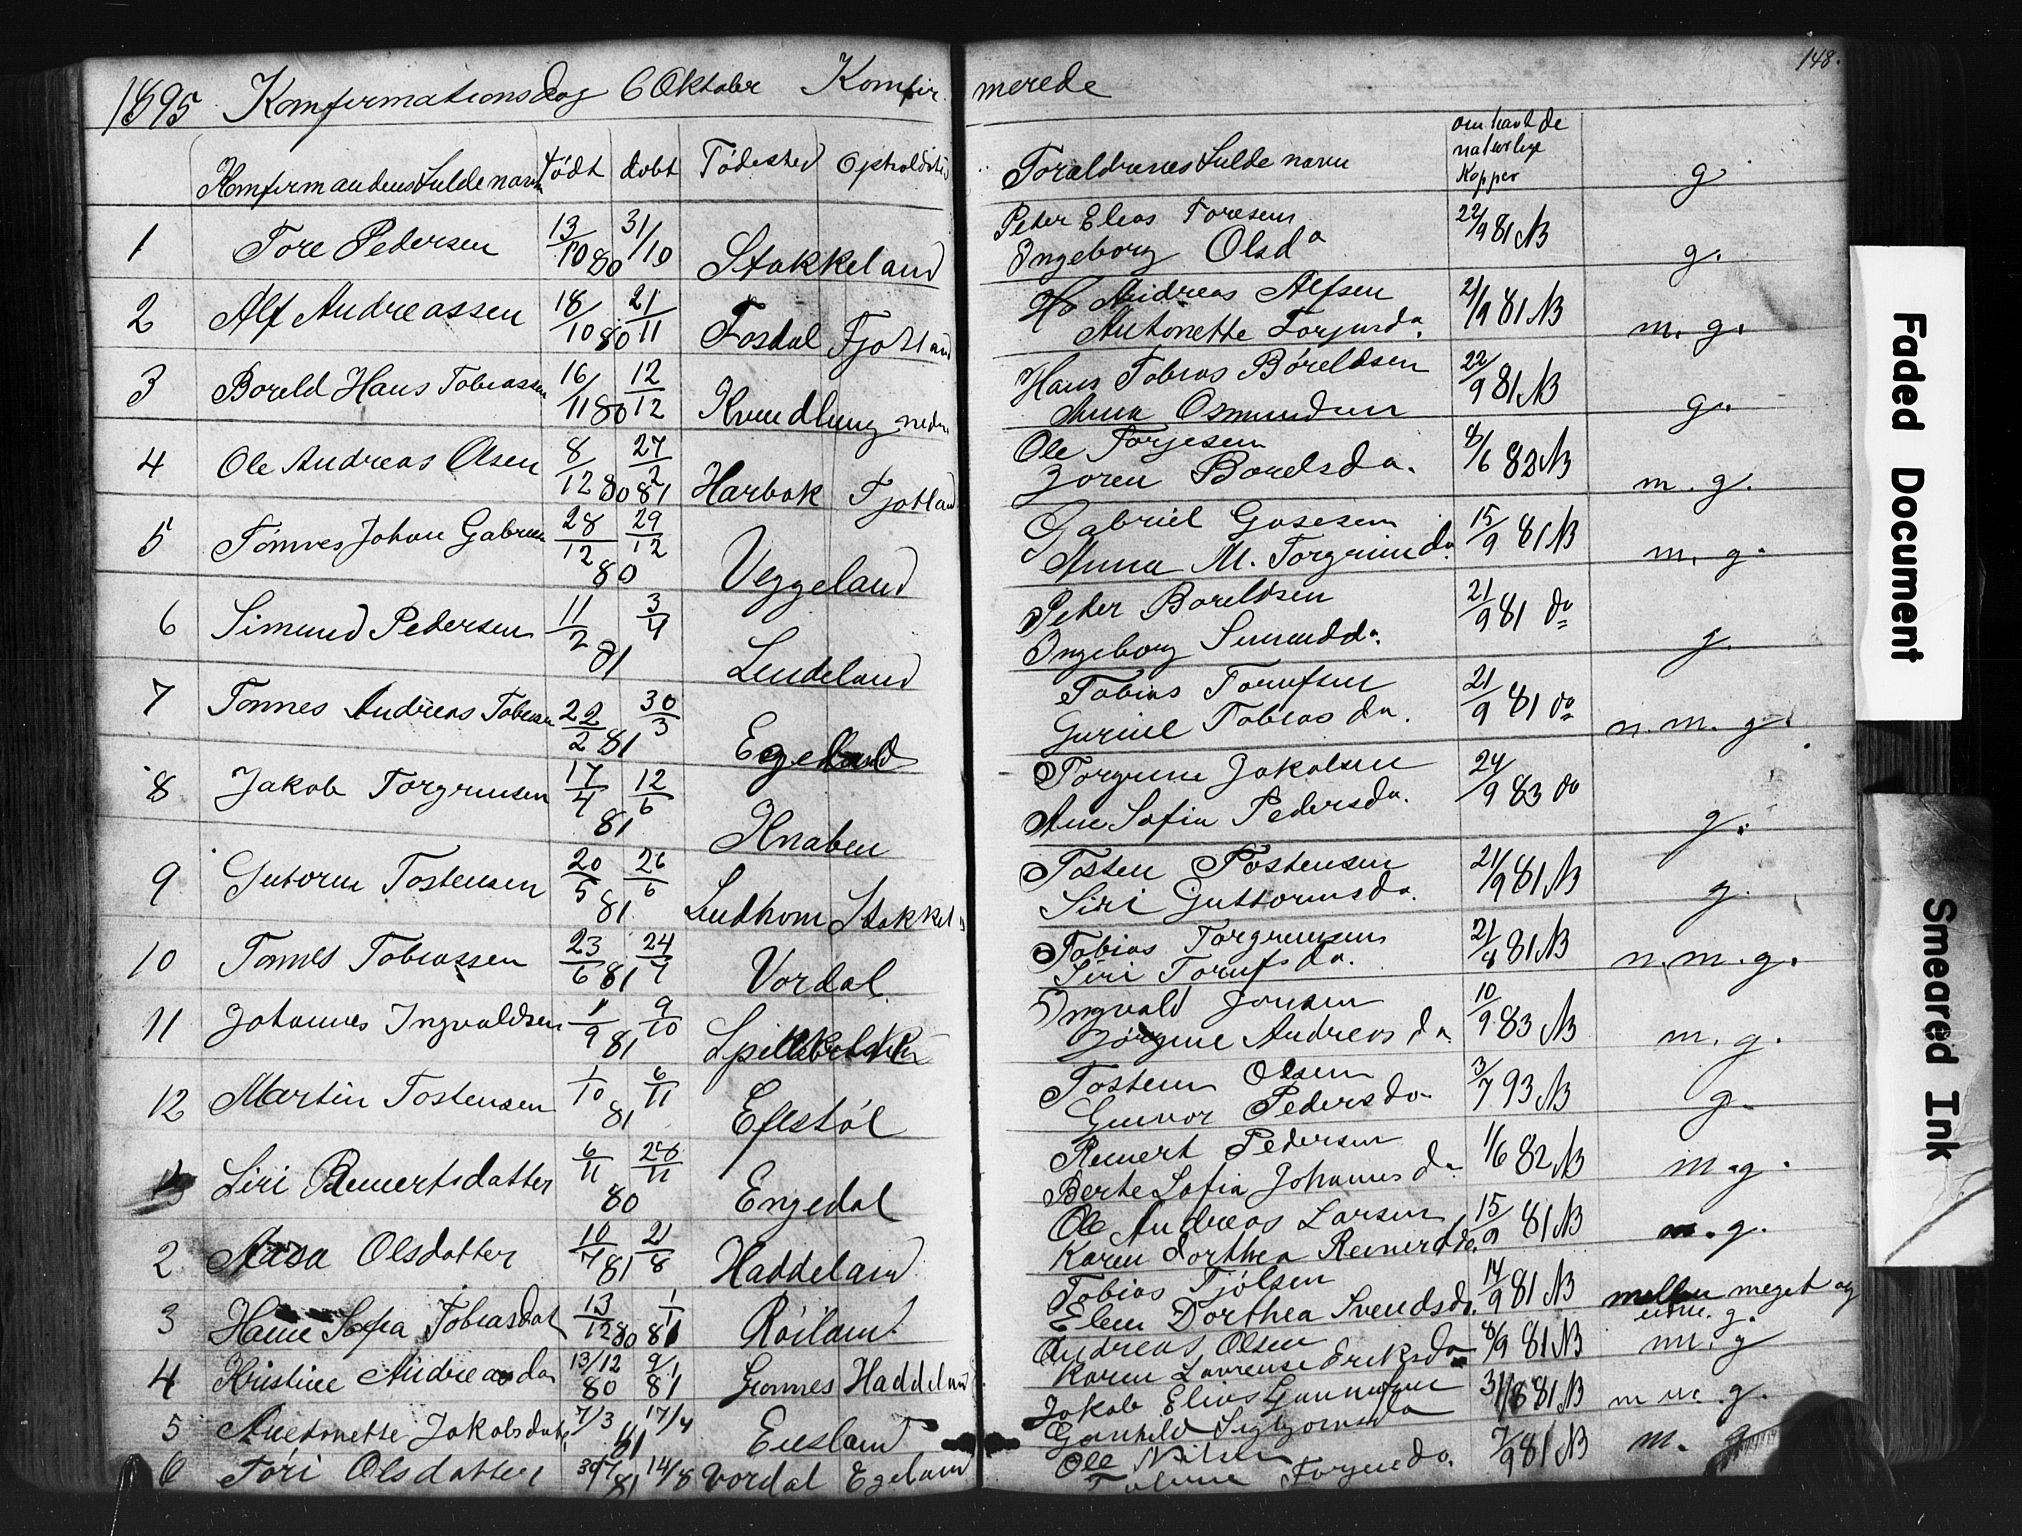 148.
1895 Konfirmationsdag 6 Oktober Konfir merede
Konfirmandens fulde navn født døbt Fødested Opholdsted Forældrenes fulde navn om havt de naturlige Kopper g
1 Tore Pedersen 13/10 80 31/10 Stakkeland
Peter Elias Toresen 22/9 81 N
Ingeborg Olsda g.
2 Alf Andreassen 18/10 80 21/11 Fosdal Fjotland
Andreas Alfsen 21/9 81 N
Antonette Torjusda. m. g.
3 Boreld Hans Tobiassen 16/11 80 12/12 Kvindlaug nedre
Hans Tobias Böreldsen 22/9 81 N
Anna Osmundsen g.
4 Ole Andreas Olsen 8/12 80 27/2 81 Harbak Fjotland
Ole Torjesen 8/6 82 N
Joren Borelsda. m. g.
5 Tönnes Johan Gabrielsen 28/12 80 29/12 Veggeland
Gabriel Gosesen 15/9 81 N
Anna M. Torgrimda. m. g.
6 Simund Pedersen 11/2 81 3/4 Lindeland
Peter Boreldsen 21/9 81 do
Ingeborg Simundda. g.
7 Tönnes Andreas Tobiassen 22/2 81 30/3 Egeland
Tobias Torufsen 21/9 81 do
Guriel Tobias da. n. m. g.
8 Jakob Torgrimsen 17/4 81 12/6 Knaben
Torgrim Jakobsen 24/9 83 do
Ane Sofia Pedersda. g.
9 Gutorm Tostensen 20/5 81 26/6 Lindhom Stakkel
Tosten Tostensen 21/9 81 N
Siri Guttormsda. g.
10 Tönnes Tobiassen 23/6 81 24/4 Vordal
Tobias Torgrimsen 21/8 81 N
Siri Torufsda. n. m. g.
11 Johannes Ingvaldsen 1/9 81 9/10
Ingvald Jonsen 10/9 83 N
Jörgine Andreas da. m. g.
12 Martin Tostensen 1/10 81 6/11 Efestöl
Tosten Olsen 3/7 93 N
Gunvor Pedersda. g.
Siri Reinertsdatter 6/11 80 28/11 Engedal
Reinert Pedersen 1/6 82 N
Berte Sofia Johannes da. m. g.
2 Aasa Olsdatter 10/7 81 21/8 Haddeland
Ole Andreas Larsen 15/9 81 N
Karen Dorthea Reinertda. m. g.
3 Hanne Sofia Tobiasdat 13/12 80 1/1 81 Röiland
Tobias Fjölsen 14/9 81 N
Elen Dorthea Svendsda. mellem meget og
g.
4 Kristine Andreasda 13/12 80 9/1 81 Haddeland
Andreas Olsen 8/9 81 N
Karen Lavrense Eriksda m. g
5 Antonette Jakobsdat 7/3 81 17/4
Jakob Elias Gunnufsen 31/8 81 N
Gunhild Sigbjörnsda m m. g.
6 Tori Olsdatter 30/7 81 14/8 Vordal Egeland
Ole Nilsen 7/9 81 N
m. g
Faded Document
Smeared Ink